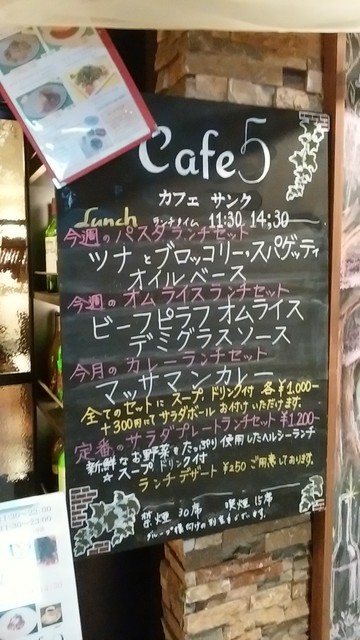 Cafe 5
カフェ サンク
Lunch ランチタイム 11:30 14:30
今週のパスタランチセット
ツナとブロッコリー・スパゲッティ
オイルベース
今週のオムライスランチセット
ビーフピラフオムライス
デミグラスソース
今月のカレーランチセット
マッサマンカレー
全てのセットにスープ、ドリンク付 各¥1,000-
+300円にてサラダボール お付けいただけます。
定番のサラダプレートランチセット ¥1,200-
新鮮なお野菜をたっぷり使用したヘルシーランチ
☆スープ ドリンク付
ランチデザート ¥250 ご用意しております。
禁煙 30席 喫煙 15席